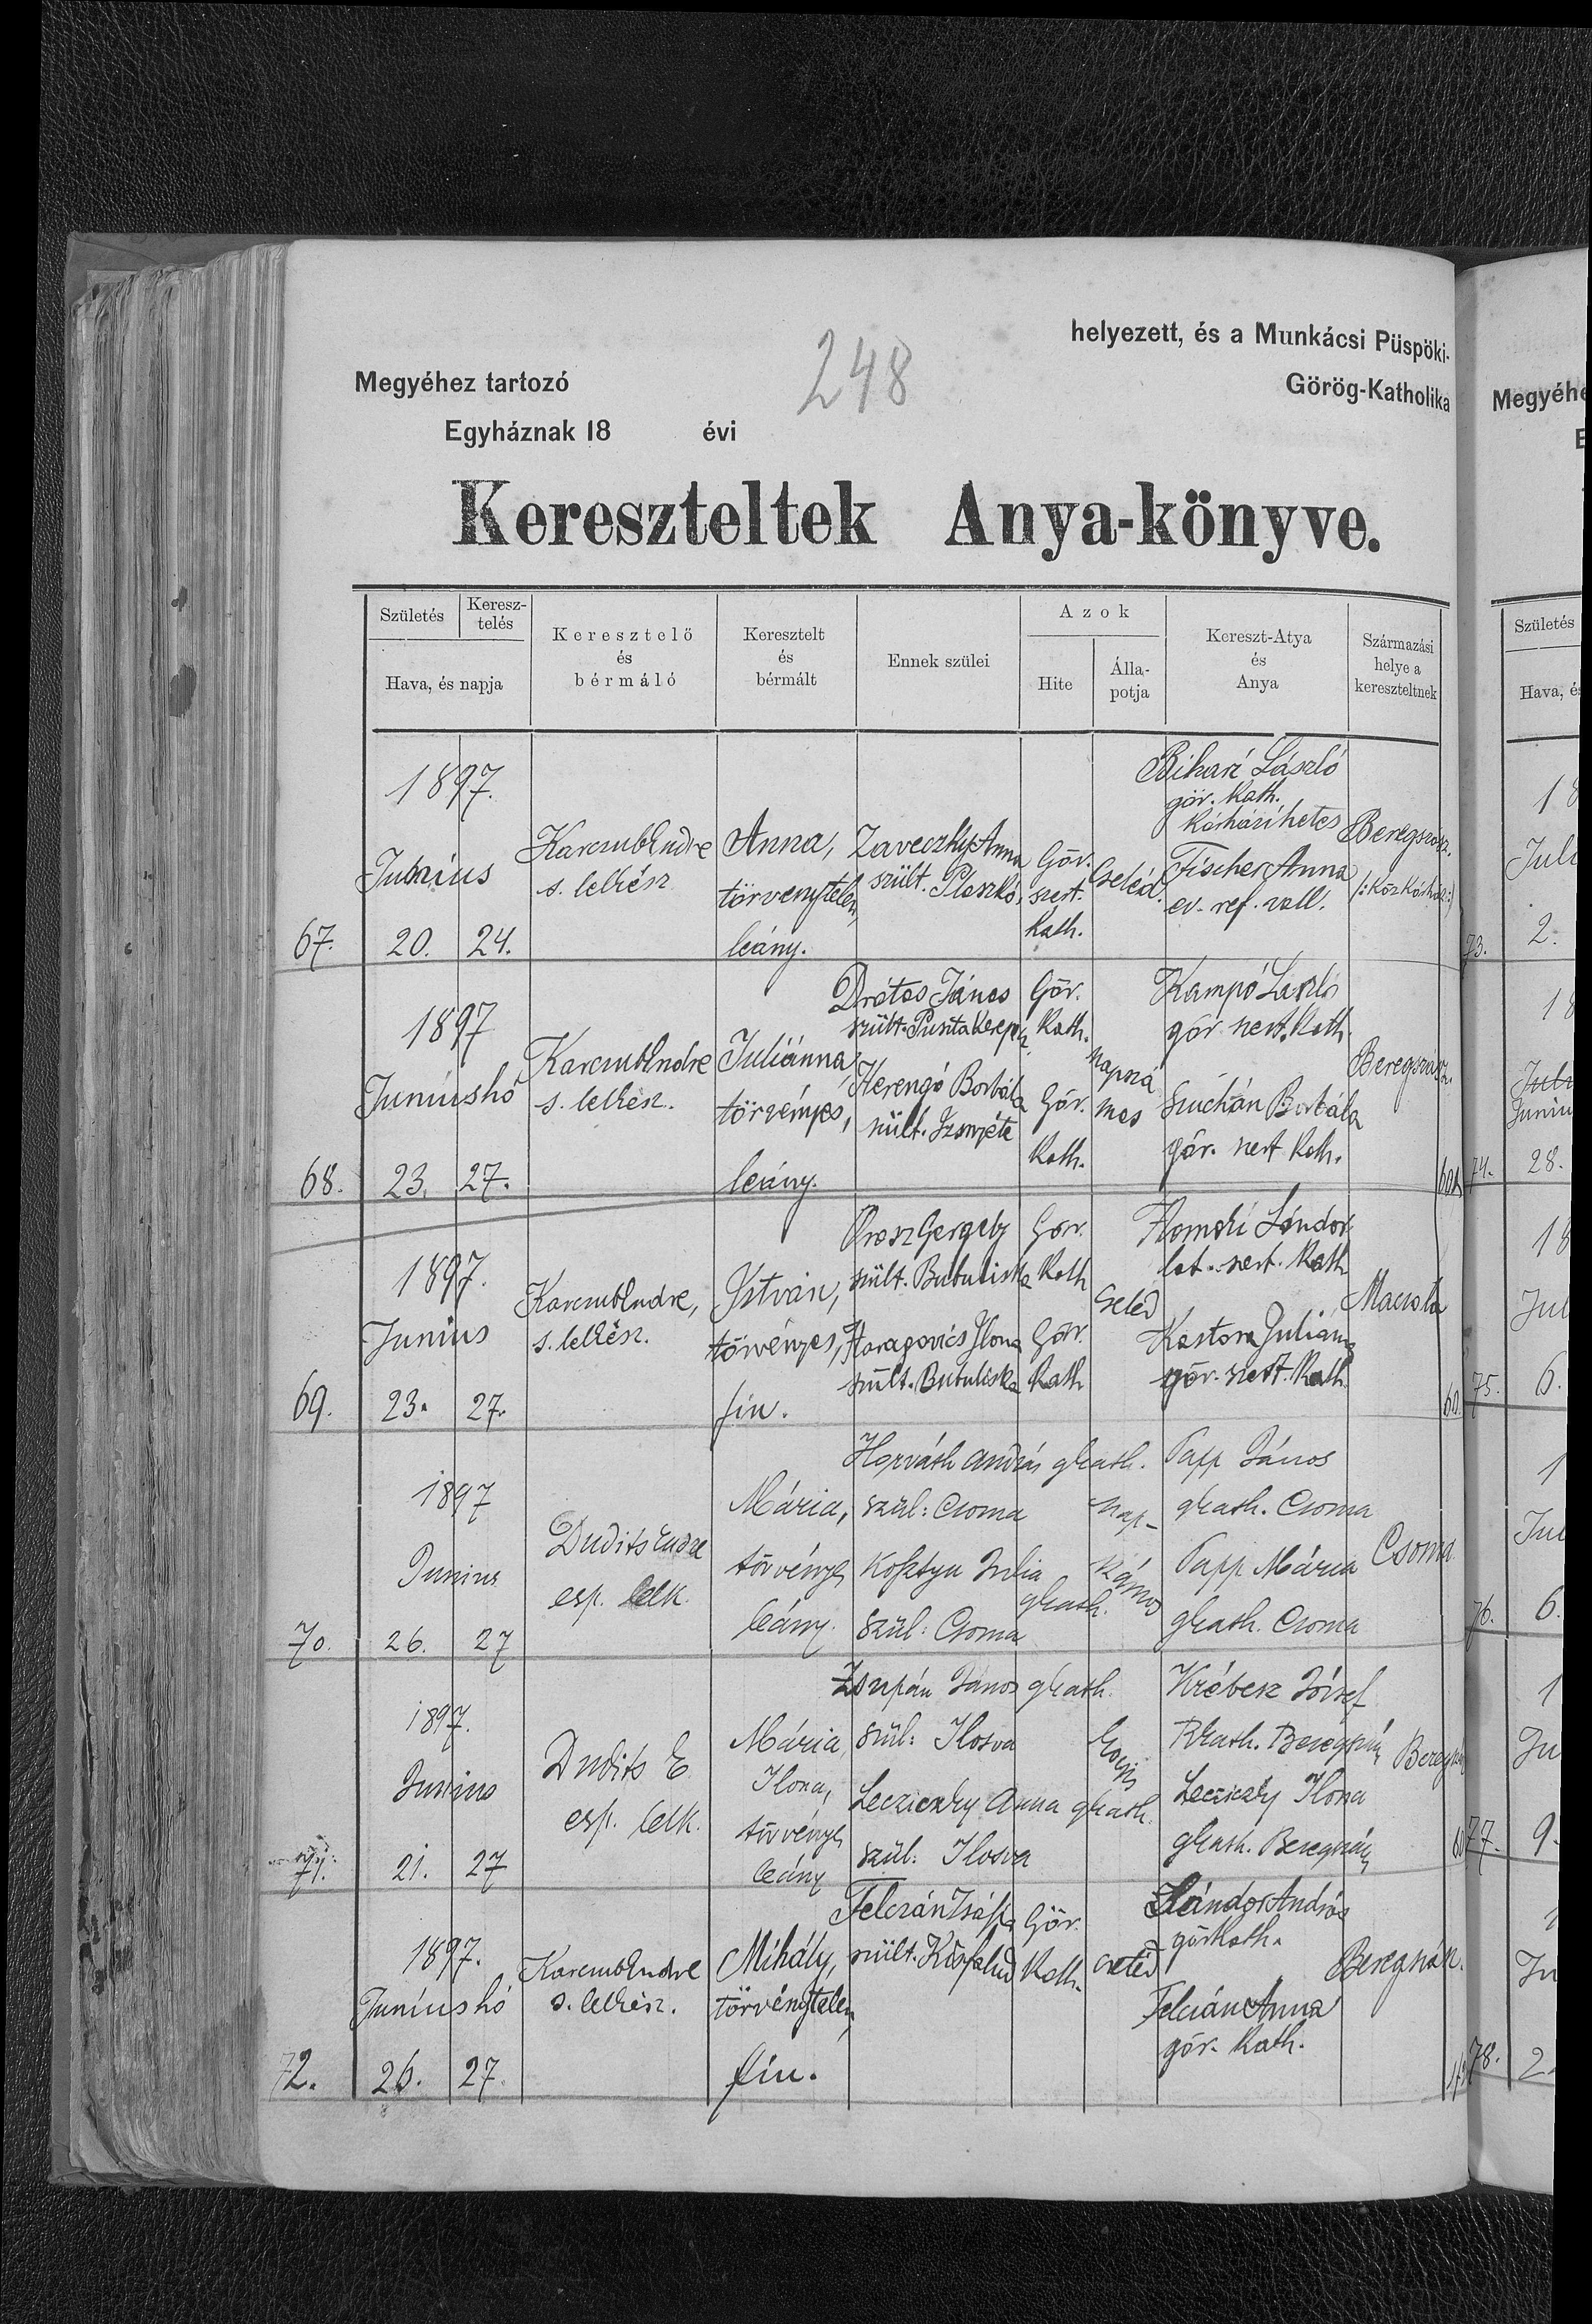 helyezett, és a Munkácsi Püspöki-
Megyéhez tartozó
248
Görög-Katholika
Egyháznak 18 évi
Kereszteltek Anya-könyve.
Születés
Keresz-
telés
Hava, és napja
Keresztelő
és
bérmáló
Keresztelt
és
bérmált
Ennek szülei
Azok
Hite
Álla-
potja
Kereszt-Atya
és
Anya
Származási
helye a
kereszteltnek
67.
1897.
Június
20. 24.
Endre
s. lelkész
Anna,
törvénytelen,
leány.
Zaveczky Anna
szült. Ploszkó,
Gör.
szert.
kath.
Cseléd.
Bihari László
gör. kath.
kórházi hetes
Fischer Anna
ev. ref. vall.
Beregszász.
(:Köz Kórház:)
68.
1897
Június hó
23. 27.
Endre
s. lelkész.
Juliánna
törvényes,
leány.
Drótos János
szült.
Gör.
Kath.
Herengő Borbála
szült. Izsnyéte
Gör.
Kath.
napszá
mos
Kampó László
gör szert. Kath.
Borbála
gör. szert Kath.
Beregszász.
69.
1897.
Junius
23. 27.
Endre,
s. lelkész.
István,
törvényes,
fiu.
Orosz Gergely
szült. Bubuliska
Gör.
Kath
Ilona
szült. Bubuliska
Gör.
Kath
Cseléd
Sándor
lat. szert. Kath
Juliánna
gör. szert. Kath.
Macsola
70.
1897
Junius
26. 27
Dudits Endre
esp. lelk.
Mária,
törvényes
leány.
Horváth András gkath.
szül: Csoma
Kosztyu Julia
gkath.
szül: Csoma
Nap-
számos
Papp János
gkath. Csoma
Papp Mária
gkath. Csoma
Csoma
71.
1897.
Junius
21. 27
Dudits E
esp. lelk.
Mária,
Ilona,
törvényes
leány
Zsupán János gkath.
szül: Ilosva
Lecziczky Anna gkath.
szül: Ilosva
Krébesz József
Rkath. Beregszász
Lecziczky Ilona
gkath. Beregszász
72.
1897.
Június hó
26. 27.
Endre
s. lelkész.
Mihály,
törvénytelen,
fiu.
Felczán Zsófia
szült. Kisfalud
Gör.
Kath.
cseléd
Sándor András
gör Kath.
Felczán Anna
gör. Kath.
Beregszász.
73.
2.
74.
28.
75.
6.
76.
6.
77.
9.
78.
2.
Születés